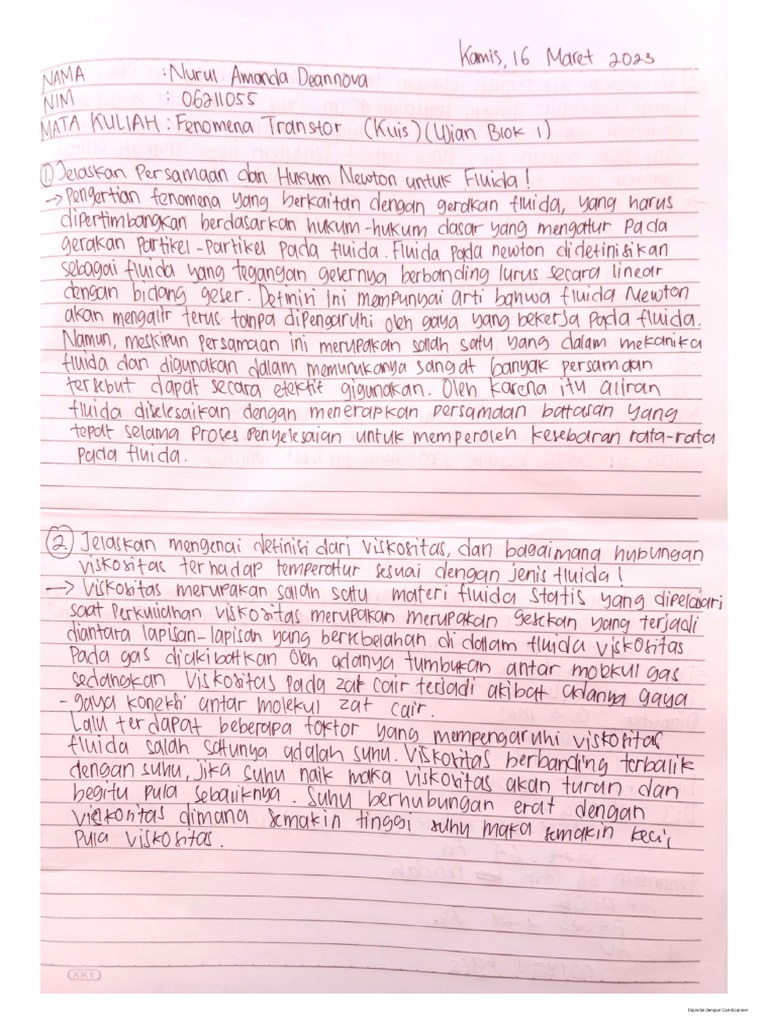 Kamis, 16 Maret 2023
NAMA : Nurul Amanda Deannova
NIM : 06211055
MATA KULIAH : Fenomena Transfor (Kuis) (Ujian Blok 1)
① Jelaskan Persamaan dan Hukum Newton untuk Fluida!
→ Pengertian fenomena yang berkaitan dengan gerakan fluida, yang harus
dipertimbangkan berdasarkan hukum-hukum dasar yang mengatur pada
gerakan partikel-partikel pada fluida. Fluida pada newton didefinisikan
sebagai fluida yang tegangan gesernya berbanding lurus secara linear
dengan bidang geser. Definiri ini mempunyai arti bahwa fluida Newton
akan mengalir terus tanpa dipengaruhi oleh gaya yang bekerja pada fluida.
Namun, meskipun persamaan ini merupakan salah satu yang dalam mekanika
fluida dan digunakan dalam memurukanya sangat banyak persamaan
tersebut dapat secara efektif gigunakan. Oleh karena itu aliran
fluida diselesaikan dengan menerapkan persamaan batasan yang
tepat selama proses penyelesaian untuk memperoleh kesebaran rata-rata
pada fluida.
② Jelaskan mengenai definisi dari viskositas, dan bagaimana hubungan
viskositas terhadap temperatur sesuai dengan jenis fluida!
→ Viskositas merupakan salah satu materi fluida statis yang dipelajari
saat perkuliahan viskositas merupakan merupakan gesekan yang terjadi
diantara lapisan-lapisan yang bersebelahan di dalam fluida viskositas
Pada gas diakibatkan oleh adanya tumbukan antar molekul gas
sedangkan viskositas pada zat cair terjadi akibat adanya gaya
- gaya konekhi antar molekul zat cair.
Lalu terdapat beberapa faktor yang mempengaruhi viskositas
fluida salah satunya adalah suhu. Viskositas berbanding terbalik
dengan suhu, jika suhu naik maka viskositas akan turun dan
begitu pula sebaliknya. Suhu berhubungan erat dengan
viskositas dimana semakin tinggi suhu maka semakin kecil
pula viskositas.
KIKY
Dipindai dengan CamScanner